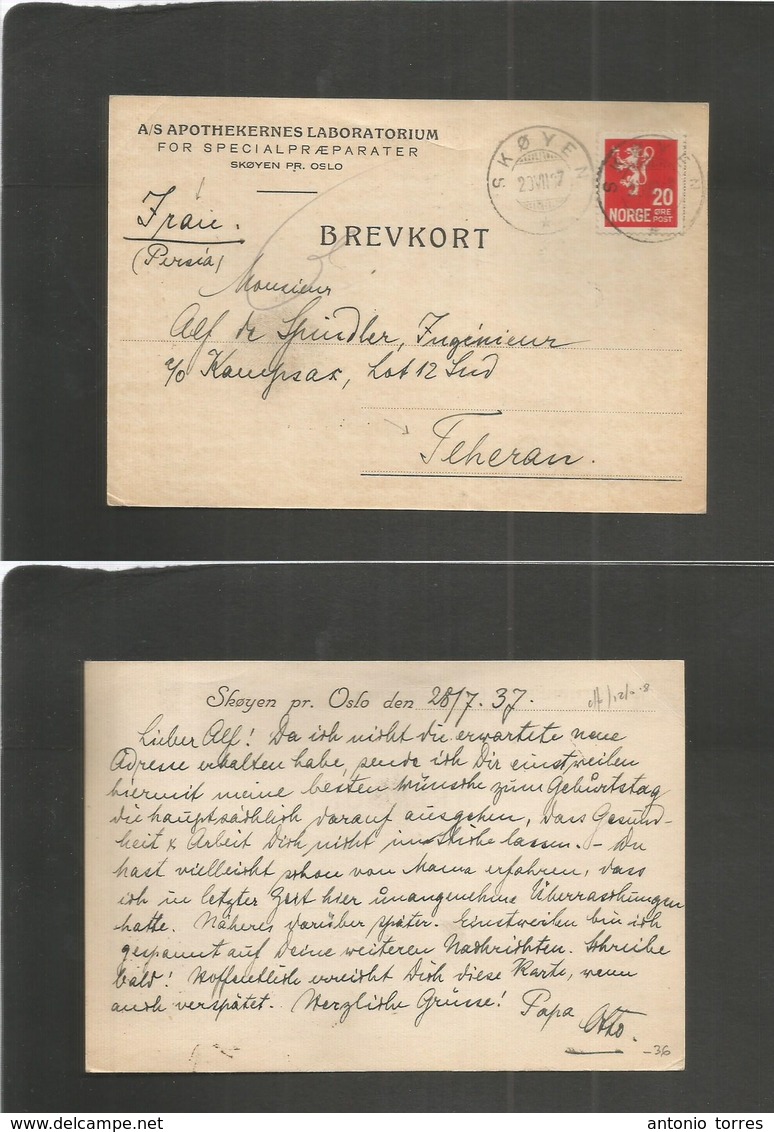 A/S APOTHEKERNES LABORATORIUM
FOR SPECIALPRÆPARATER
SKØYEN PR. OSLO
SKØYEN
20
NORGE ØRE POST
Iran.
(Persia)
BREVKORT
Monsieur
Alf de Spindler, Ingénieur
c/o Kampsax, Lot 12 Sud
Teheran.
Skøyen pr. Oslo den 28/7. 37.
Lieber Alf! Da ich nicht die erwartete neue
Adresse erhalten habe, sende ich Dir einstweilen
hiermit meine besten Wünsche zum Geburtstag
die hauptsächlich darauf ausgehen, dass Gesund-
heit & Arbeit Dich nicht im Stiche lassen. – Du
hast vielleicht schon von Mama erfahren, dass
ich in letzter Zeit hier unangenehme Überraschungen
hatte. Näheres darüber später. Einstweilen bin ich
gespannt auf Deine weiteren Nachrichten. Schreibe
bald! Hoffentlich erreicht Dich diese Karte, wenn
auch verspätet. Herzliche Grüsse! Papa
Otto.
-36
antonio torres